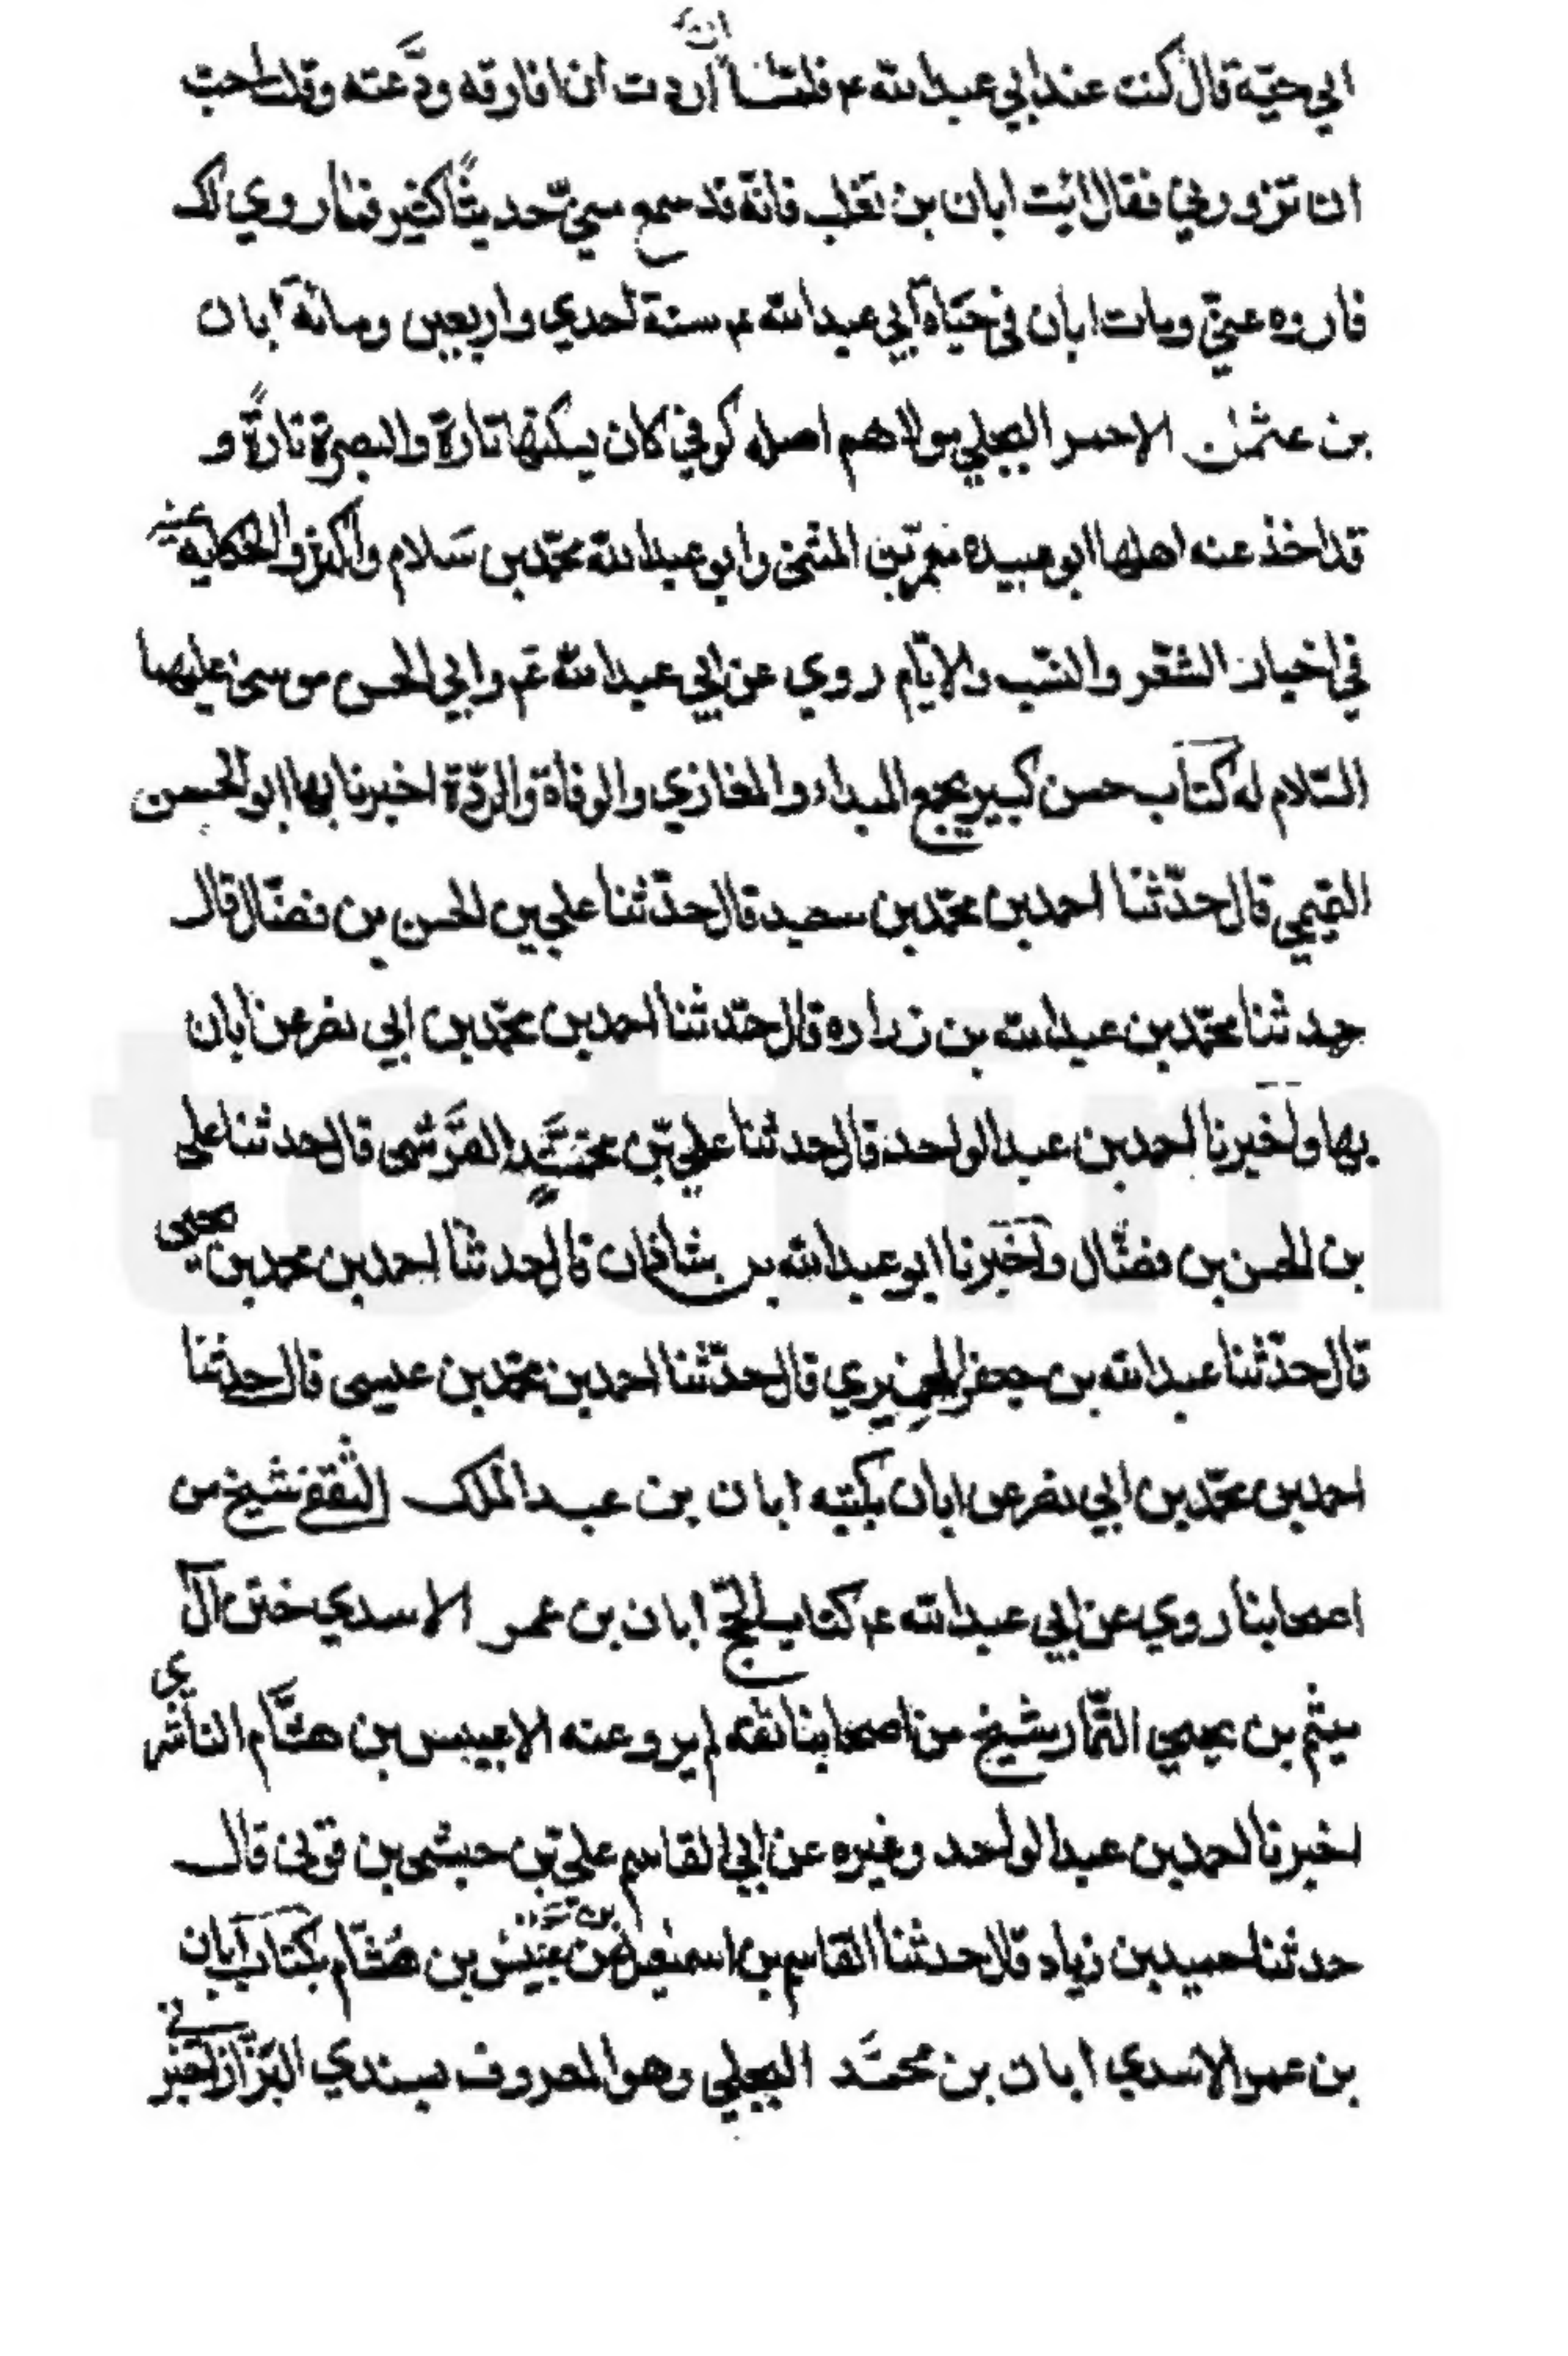 ابي حيّة قال كنت عند ابي عبد الله ع فلمّا ان اردت ان افارقه ودَّعته وقلت احبّ
ان تزودني فقال ائت ابان بن تغلب فانّه قد سمع منّي حديثاً كثير فما روي لك
فاروه عنّي ومات ابان في حَيَاة ابي عبد الله ع سنة احدي واربعين ومائة ابان
بن عثمٰن الاحمر البجلي مولاهم اصله كوفيّ كان يسكنها تارة والبصرة تارةً و
قد اخذ عنه اهلها ابو عبيده معمر بن المثنى وابو عبد الله محمّد بن سَلام واكثروا الحكاية عنه
في اخبار الشعر والنسّب والايّام روي عن ابي عبد الله ع وابي الحسن موسى عليهما
السّلام له كتاب حسن كبير يجمع المبداء والمغازي والوفاة والردّة اخبرنا بها ابو الحسن
التميمي قال حدّثنا احمد بن محمّد بن سعيد قال حدّثنا علي بن الحسن بن فضّال قال
حدثنا محمّد بن عبد الله بن زراره قال حدّثنا احمد بن محمّد بن ابي نصر عن ابان
بها واخبرنا احمد بن عبد الواحد قال حدثنا عليّ بن محمَّد القرَشي قال حدثنا علي
بن الحسن بن فضّال واخبرنا ابو عبد الله بن شاذان قال حدثنا احمد بن محمد بن يحيى
قال حدّثنا عبد الله بن جعفر الحميري قال حدّثنا احمد بن محمّد بن عيسى قال حدثنا
احمد بن محمّد بن ابي نصر عن ابان بكتبه ابان بن عبد الملك الثقفي شيخ من
اصحابنا روي عن ابي عبد الله ع كتاب الحّج ابان بن عمر الاسدي ختن آل
ميثم بن يحيي التّمار شيخ من اصحابنا ثقه لم يرو عنه الا عبيس بن هشَّام الناشري
اخبرنا احمد بن عبد الواحد وغيره عن ابي القاسم عليّ بن حبشي بن قوني قال
حدثنا حميد بن زياد قال حدثنا القاسم بن اسمٰعيل عن عبيس بن هشّام بكتاب ابان
بن عمر الاسدي ابان بن محمَّد البجلي وهو المعروف بسندي البزّاز اخبرني